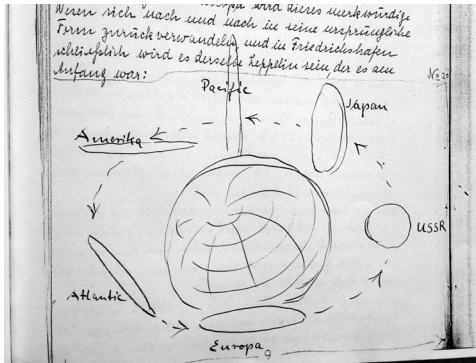 wird dieses merkwürdige
Wesen sich nach und nach in seine ursprüngliche
Form zurückverwandeln, und in Friedrichshafen
schließlich wird es derselbe Zeppelin sein, der es am
Anfang war:
No 20
Pacific
Japan
Amerika
USSR
Atlantic
Europa
9